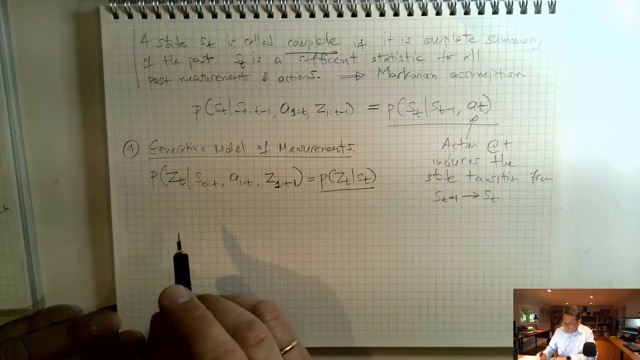 A state St is called complete if it is complete summary
of the past St is a sufficient statistic for all
past measurements & actions. ⟹ Markovian assumption
p(St | S0:t-1, a1:t, Z1:t-1) = p(St | St-1, at)
Action @ t
induces the
state transition from
St-1 → St
④ Generative Model of Measurements
p(Zt | S0:t, a1:t, Z1:t-1) = p(Zt | St)